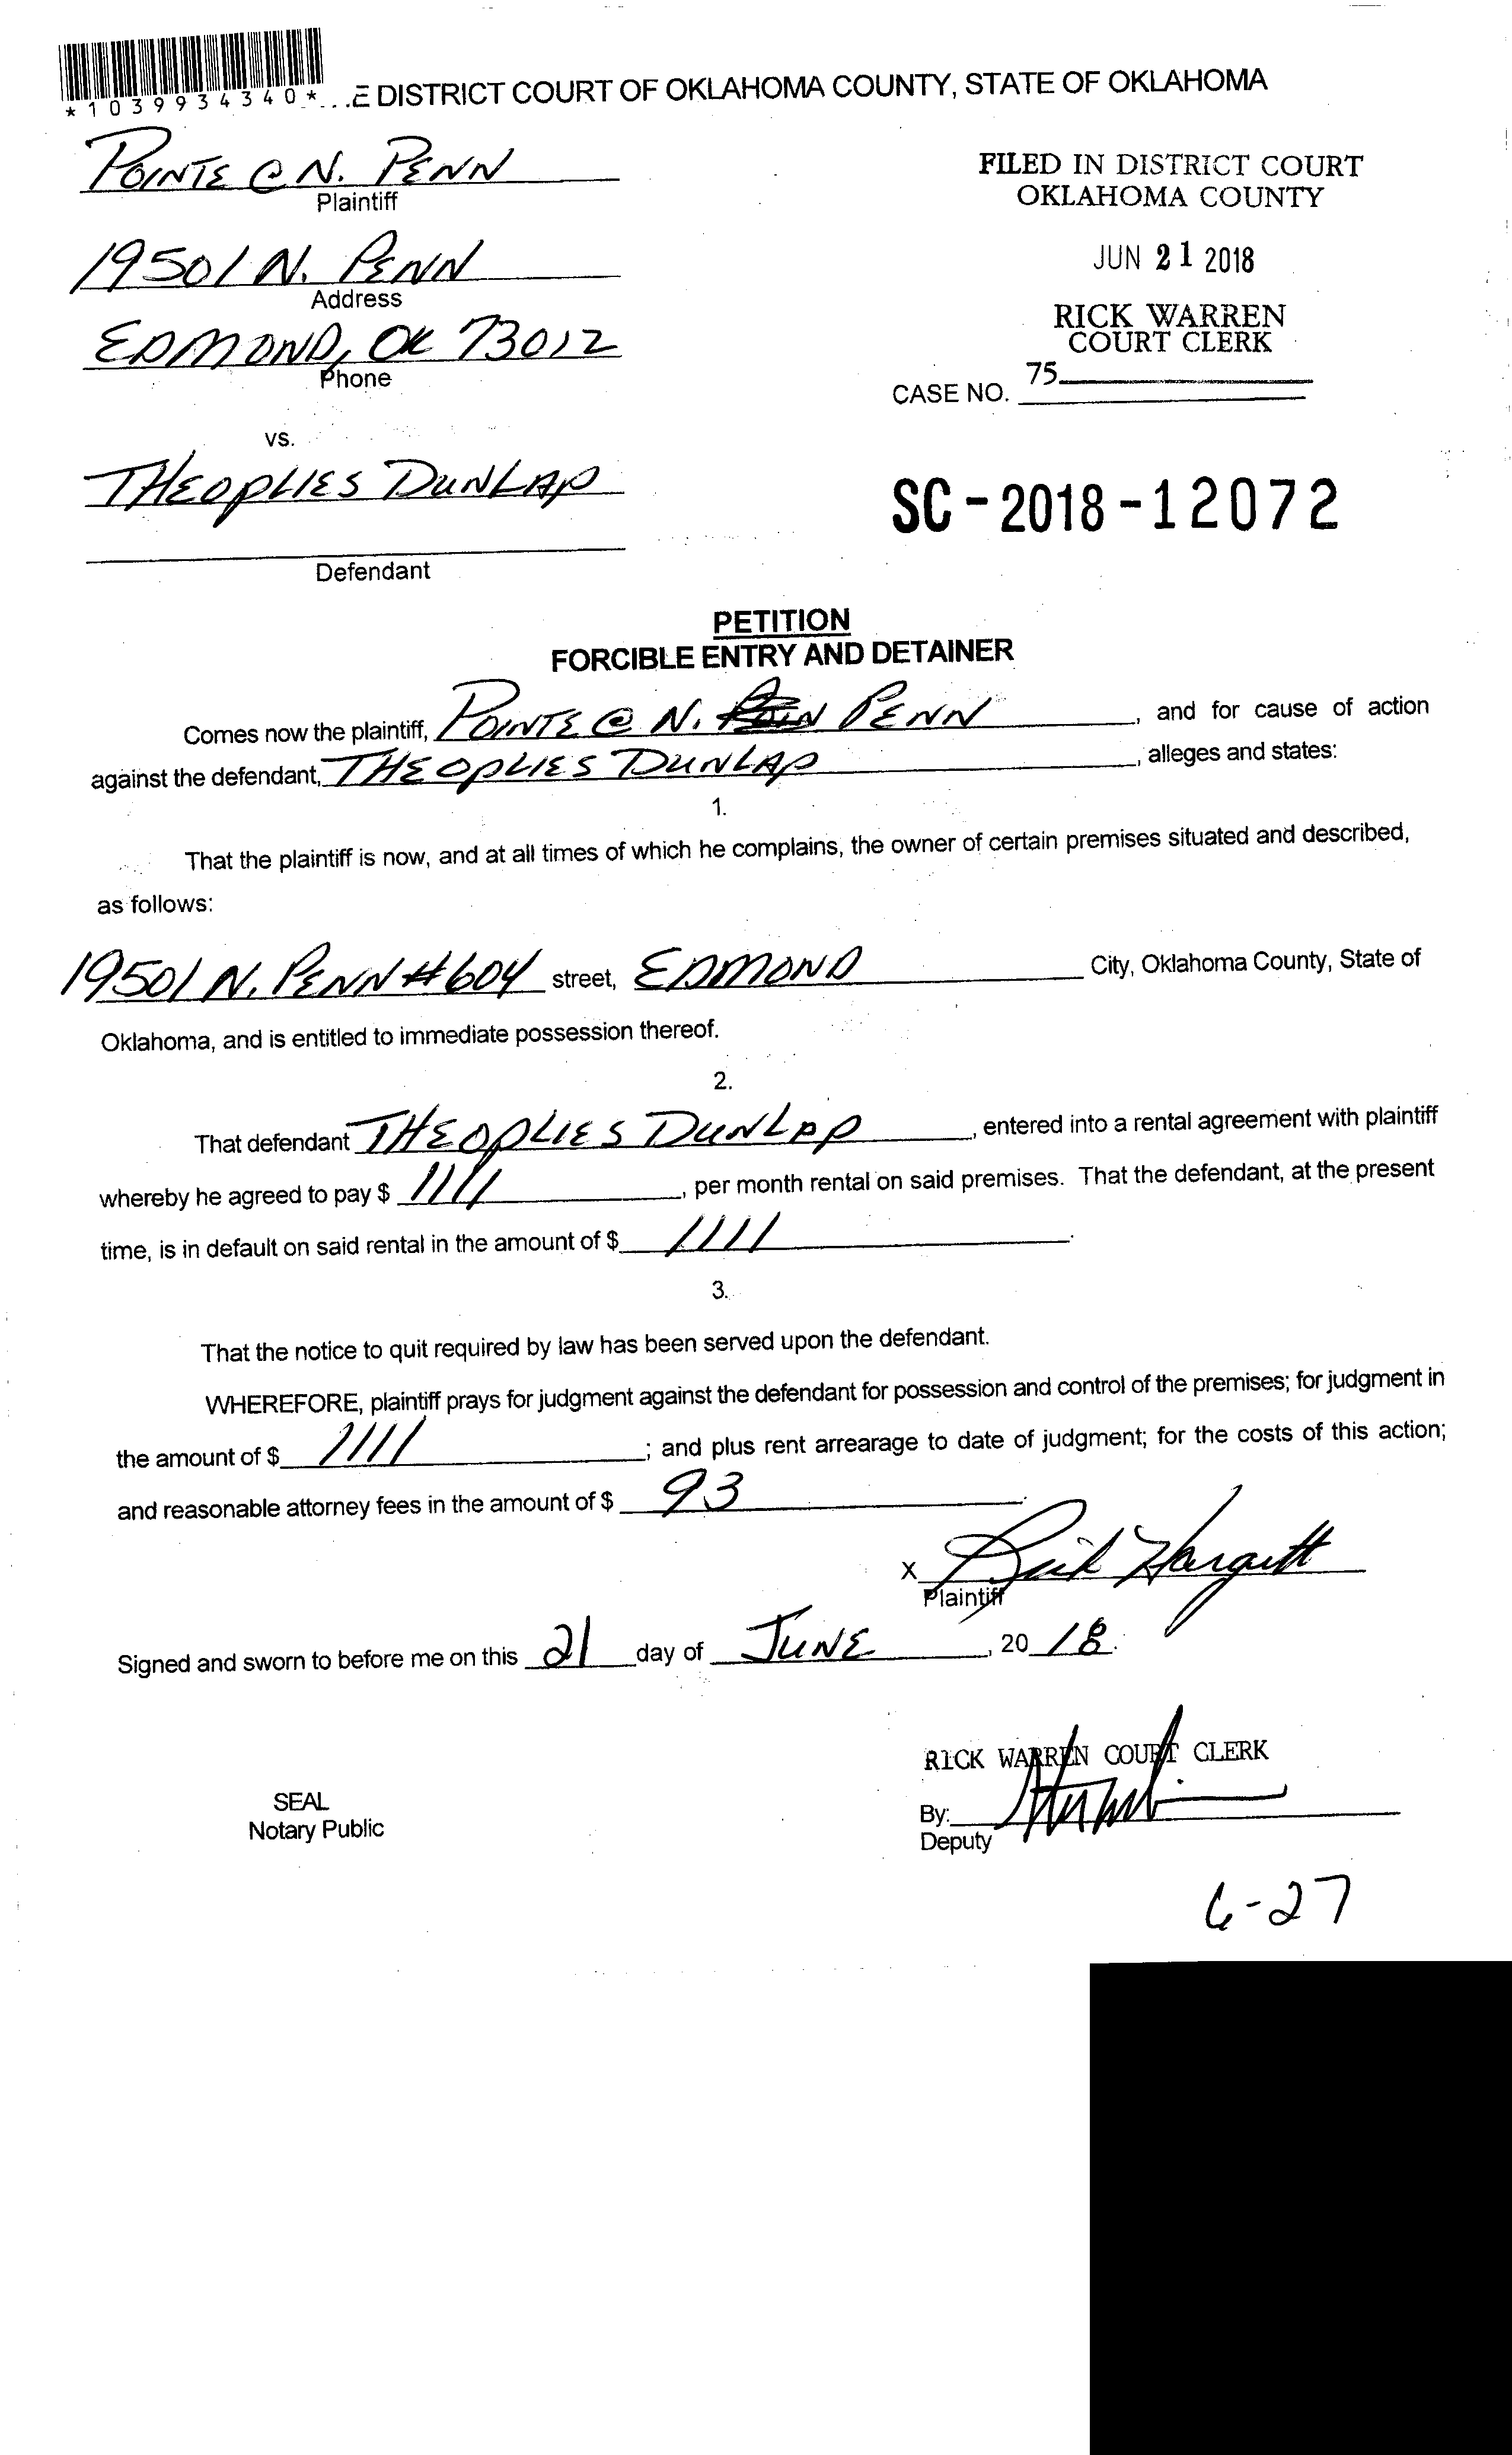 *1039934340*
E DISTRICT COURT OF OKLAHOMA COUNTY, STATE OF OKLAHOMA
POINTE @ N. PENN
Plaintiff
FILED IN DISTRICT COURT
OKLAHOMA COUNTY
19501 N. PENN
Address
JUN 21 2018
EDMOND, OK 73012
Phone
RICK WARREN
COURT CLERK
75
CASE NO.
vs.
THEOPLIES DUNLAP
SC-2018-12072
Defendant
PETITION
FORCIBLE ENTRY AND DETAINER
Comes now the plaintiff, POINTE @ N. PENN, and for cause of action
against the defendant, THEOPLIES DUNLAP, alleges and states:
1.
That the plaintiff is now, and at all times of which he complains, the owner of certain premises situated and described,
as follows:
19501 N. PENN #604 street, EDMOND City, Oklahoma County, State of
Oklahoma, and is entitled to immediate possession thereof.
2.
That defendant THEOPLIES DUNLAP, entered into a rental agreement with plaintiff
whereby he agreed to pay $ 1111, per month rental on said premises. That the defendant, at the present
time, is in default on said rental in the amount of $ 1111.
3.
That the notice to quit required by law has been served upon the defendant.
WHEREFORE, plaintiff prays for judgment against the defendant for possession and control of the premises; for judgment in
the amount of $ 1111; and plus rent arrearage to date of judgment; for the costs of this action;
and reasonable attorney fees in the amount of $ 93.
X
Plaintiff
Signed and sworn to before me on this 21 day of JUNE, 20 18.
RICK WARREN COURT CLERK
SEAL
Notary Public
By:
Deputy
6-27